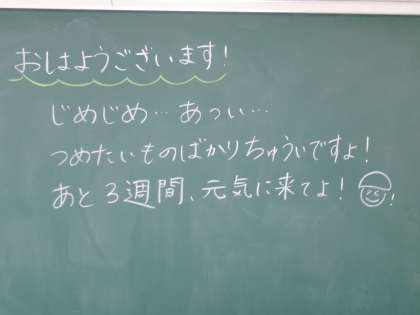 おはようございます!
じめじめ…あっい…
つめたいものばかりちゅういですよ!
あと3週間、元気に来てよ!!